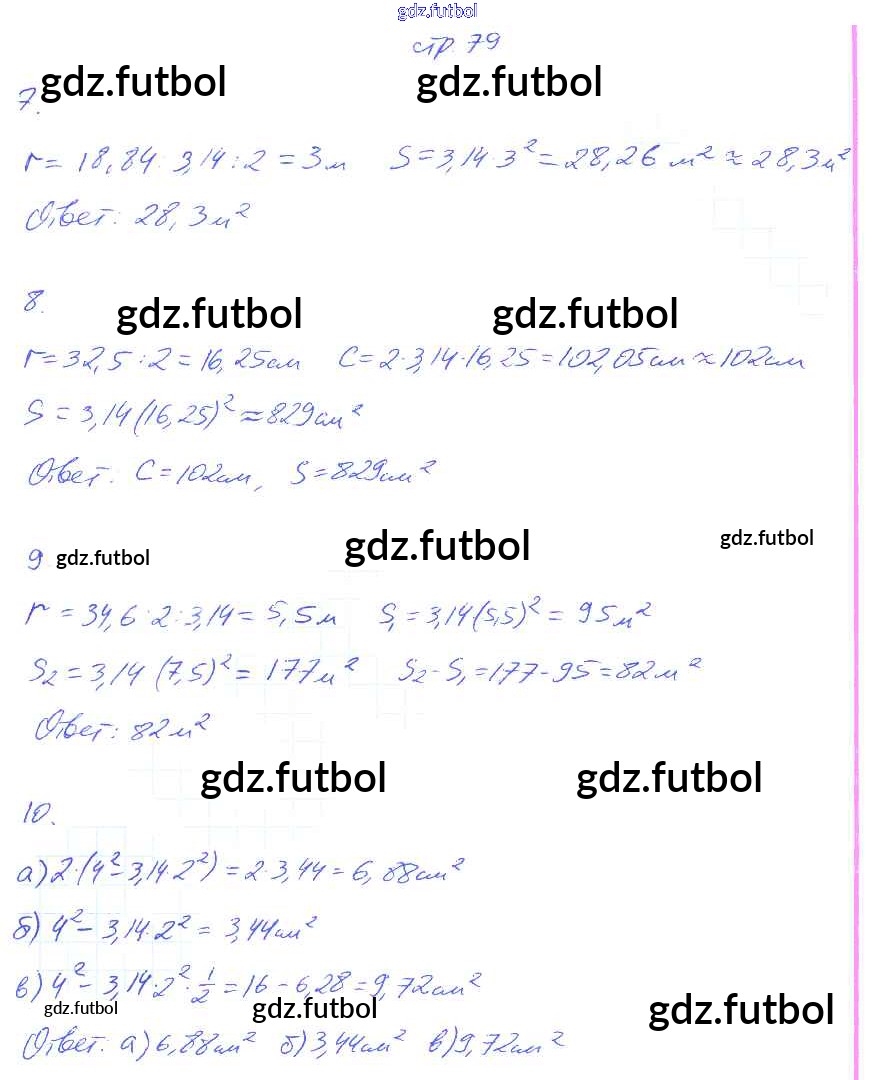 gdz.futbol
стр. 79
gdz.futbol gdz.futbol
7.
r = 18,84 : 3,14 : 2 = 3м S = 3,14 · 3² = 28,26 м² ≈ 28,3м²
Ответ: 28,3м²
8.
gdz.futbol gdz.futbol
r = 32,5 : 2 = 16,25см C = 2 · 3,14 · 16,25 = 102,05см ≈ 102см
S = 3,14 (16,25)² ≈ 829см²
Ответ: C = 102см, S = 829см²
gdz.futbol gdz.futbol
9 gdz.futbol
r = 34,6 : 2 : 3,14 = 5,5м S₁ = 3,14 (5,5)² = 95м²
S₂ = 3,14 (7,5)² = 177м² S₂ - S₁ = 177 - 95 = 82м²
Ответ: 82м²
gdz.futbol gdz.futbol
10.
а) 2 · (4² - 3,14 · 2²) = 2 · 3,44 = 6,88см²
б) 4² - 3,14 · 2² = 3,44см²
в) 4² - 3,14 · 2² · 1/2 = 16 - 6,28 = 9,72см²
gdz.futbol gdz.futbol gdz.futbol
Ответ: а) 6,88см² б) 3,44см² в) 9,72см²